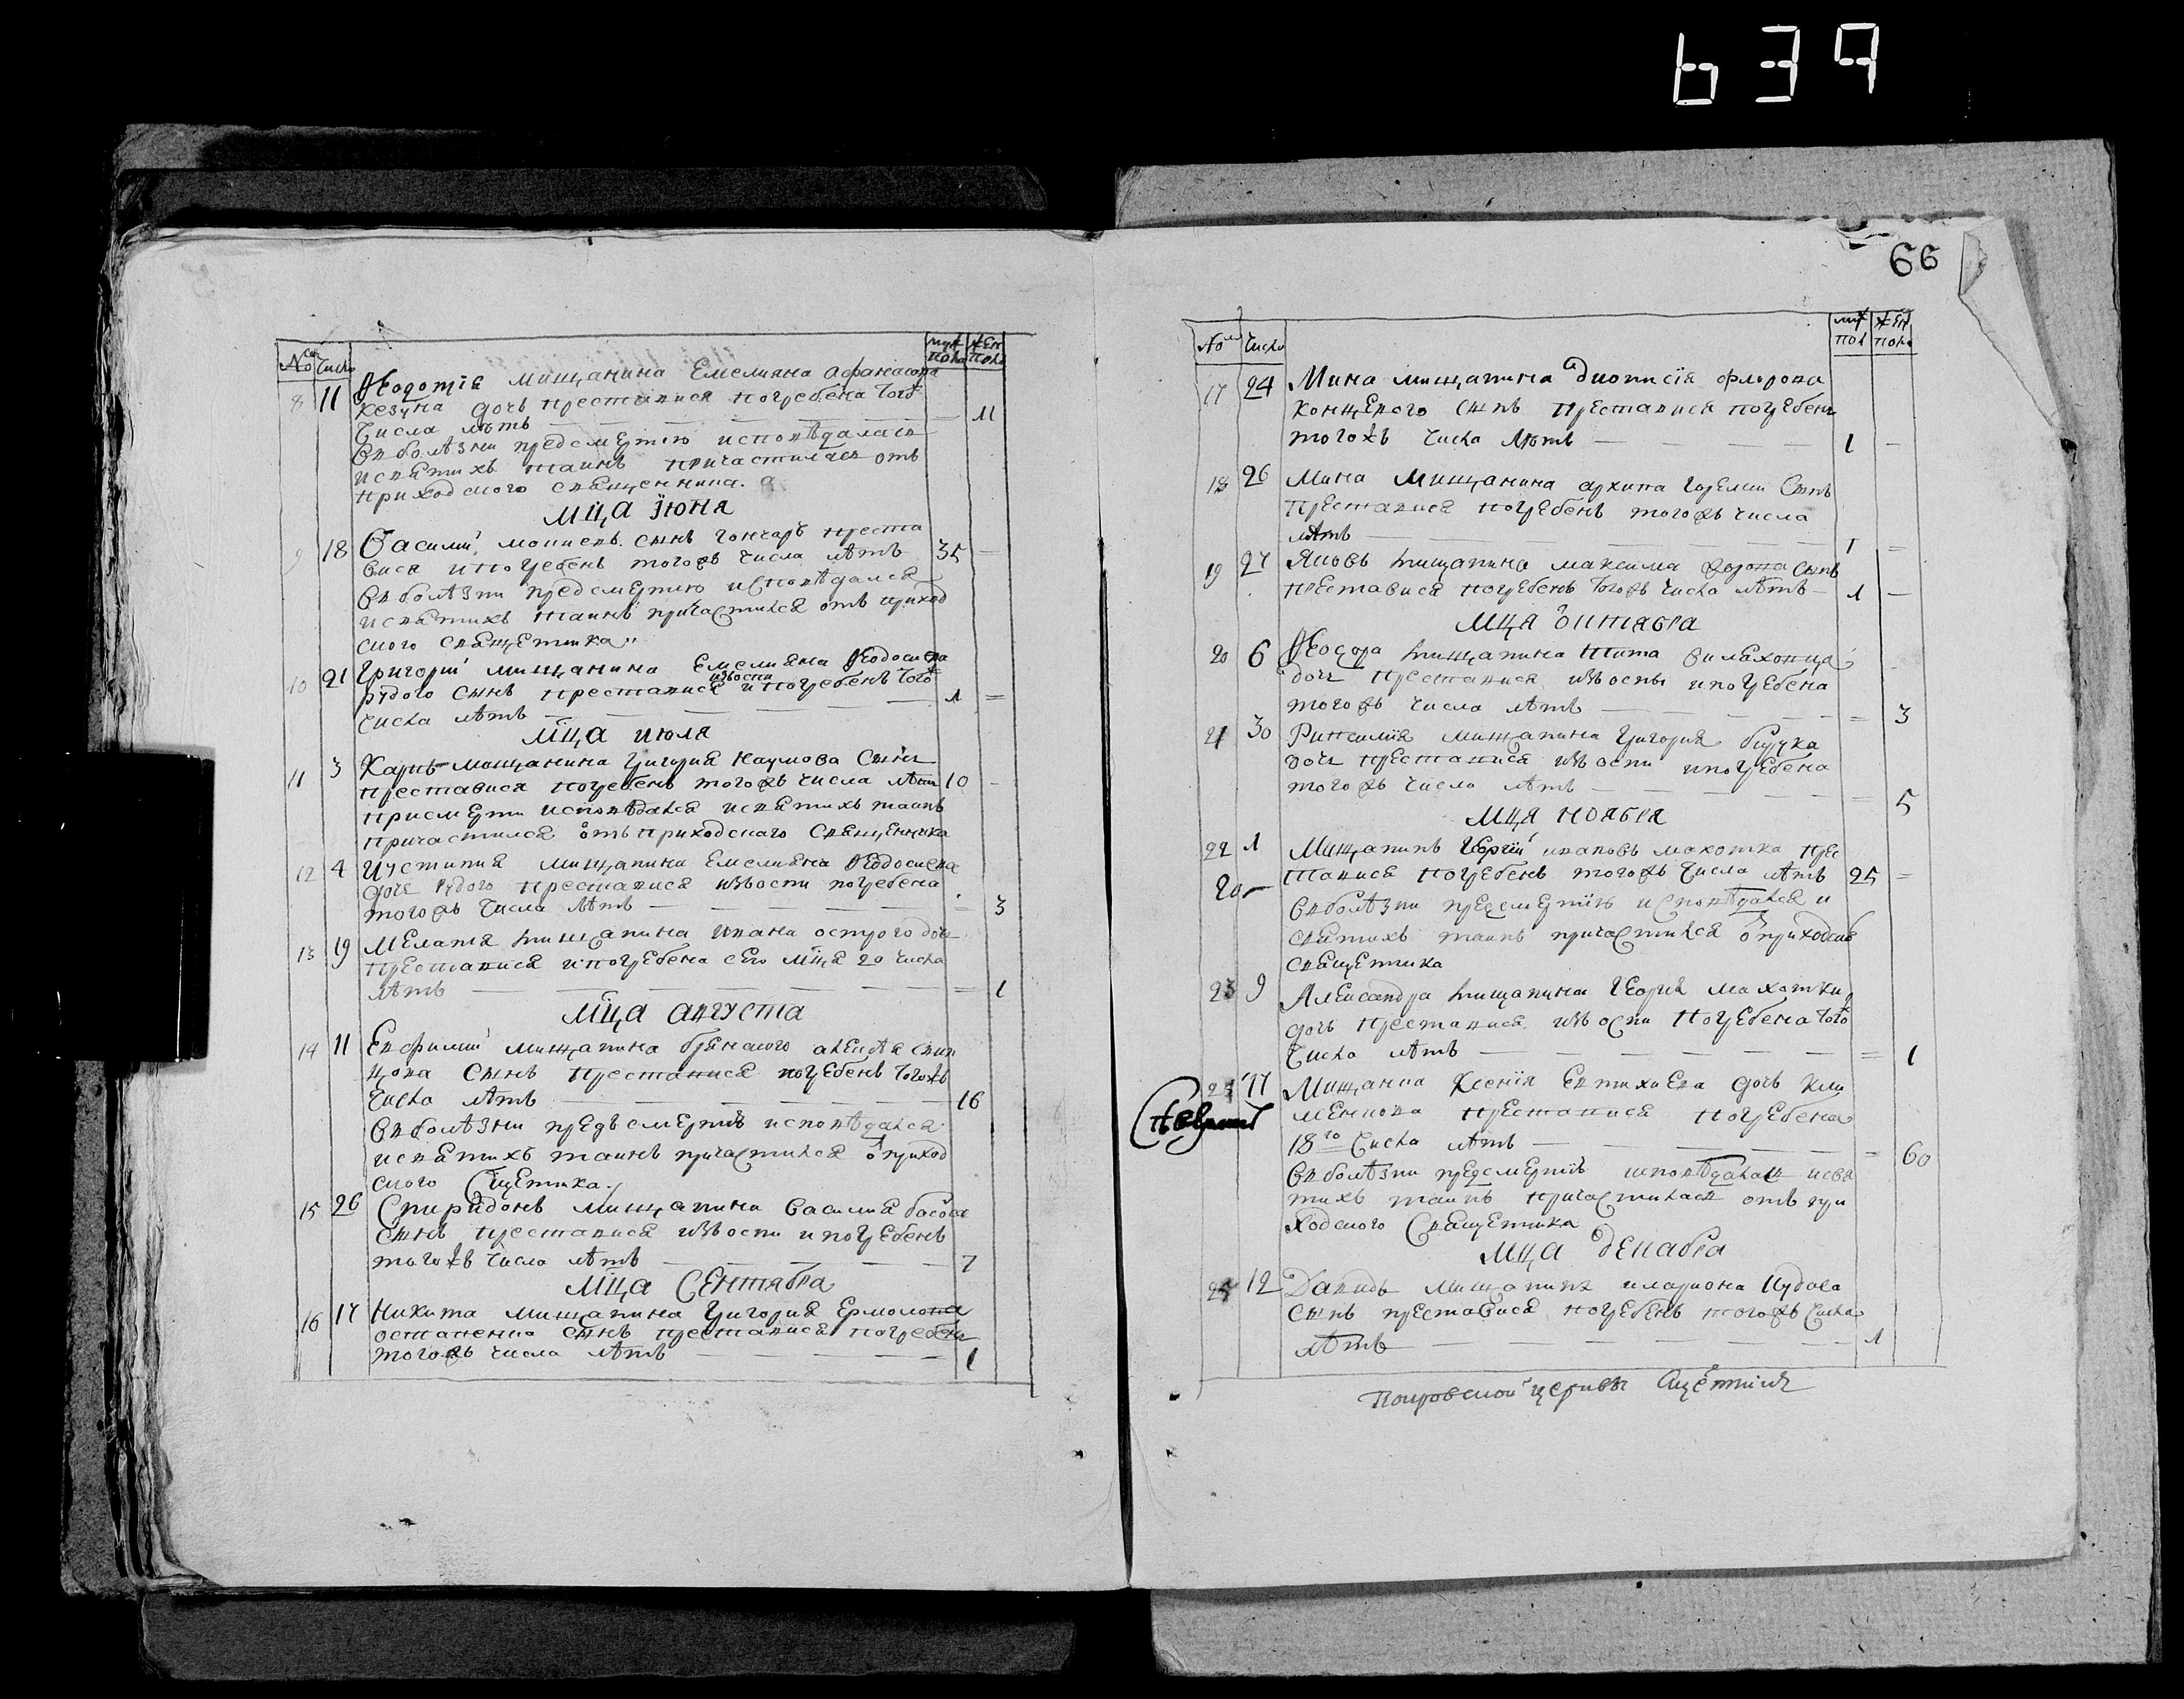 639
№ Число муж пола жен пола
8 11 Феодотия мищанина Емелияна Афанасова
дочь преставися погребена того
числа лѣтъ — 11
вболѣзни предсмертию исповѣдалася
исвятихъ таинъ причастилася отъ
приходского священника.
Мца Июня
9 18 Василий сынъ гончаръ преста
вися ипогребенъ тогожъ числа лѣтъ 35 =
вболѣзни предсмертию исповѣдался
исвятихъ таинъ причастился отъ приход
ского священика
10 21 Григорий мищанина Емелияна Феодосиева
изъоспи
рудого сынъ преставися ипогребенъ того
числа лѣтъ — 1 =
Мца июля
11 3 Карпъ мищанина Григория Наумова сынъ
преставися погребенъ тогожъ числа лѣтъ 10 -
присмерти исповѣдался исвятихъ таинъ
причастился отъ приходского священника
12 4 Иустиния мищанина Емелияна Феодосиева
дочь рудого преставися изъоспи погребена
тогожъ числа лѣтъ — = 3
13 19 Мелания мищанина Ивана острого дочь
преставися ипогребена сего мца 20 числа
лѣтъ — = 1
Мца Августа
14 11 Евфимий мищанина брянского алексѣя
цова сынъ преставися погребенъ тогожъ
числа лѣтъ — 16
вболѣзни предъсмертию исповѣдался
исвятихъ таинъ причастился о приход
ского сщеника.
15 26 Спиридонъ мищанина Василия басова
сынъ преставися изъоспи ипогребенъ
тогожъ числа лѣтъ — 7
Мца Сентября
16 17 Никита мищанина Григория Ермолова
остапенко сынъ преставися погребенъ
тогожъ числа лѣтъ — 1
66
№ Число муж пол жен пола
17 24 Мина мищанина дионисия флорова
сынъ преставися погребенъ
тогожъ числа лѣтъ — 1 -
18 26 Мина мищанина архипа горелки сынъ
преставися погребенъ тогожъ числа
лѣтъ — 1 =
19 27 Яковъ мищанина максима сынъ
преставися погребенъ тогожъ числа лѣтъ — 1 -
Мця октября
20 6 Феодора мищанина Тита
дочь преставися изъоспы ипогребена
тогожъ числа лѣтъ — = 3
21 30 мищанина Григория
дочь преставися изъоспи ипогребена
тогожъ числа лѣтъ — = 5
Мця ноября
22 1 Мищанинъ Георгий ивановъ махотка прес
тавися погребенъ тогожъ числа лѣтъ 25 =
вболѣзни предсмертию исповѣдался и
святихъ таинъ причастился о приходско
священика
23 9 Александра мищанина Георгия махотки
дочь преставися изъоспи погребена того
числа лѣтъ — = 1
24 17 Мищанка Ксения Евтихиева дочь Кли
менкова преставися погребена
18го числа лѣтъ — = 60
вболѣзни предсмертию исповѣдалася исвя
тихъ таинъ причастилася отъ при
ходского священика
Мца декабря
25 12 Давидъ мищанина илариона
сынъ преставися погребенъ тогожъ числа
лѣтъ — 1
Покровской церкви сщенникъ